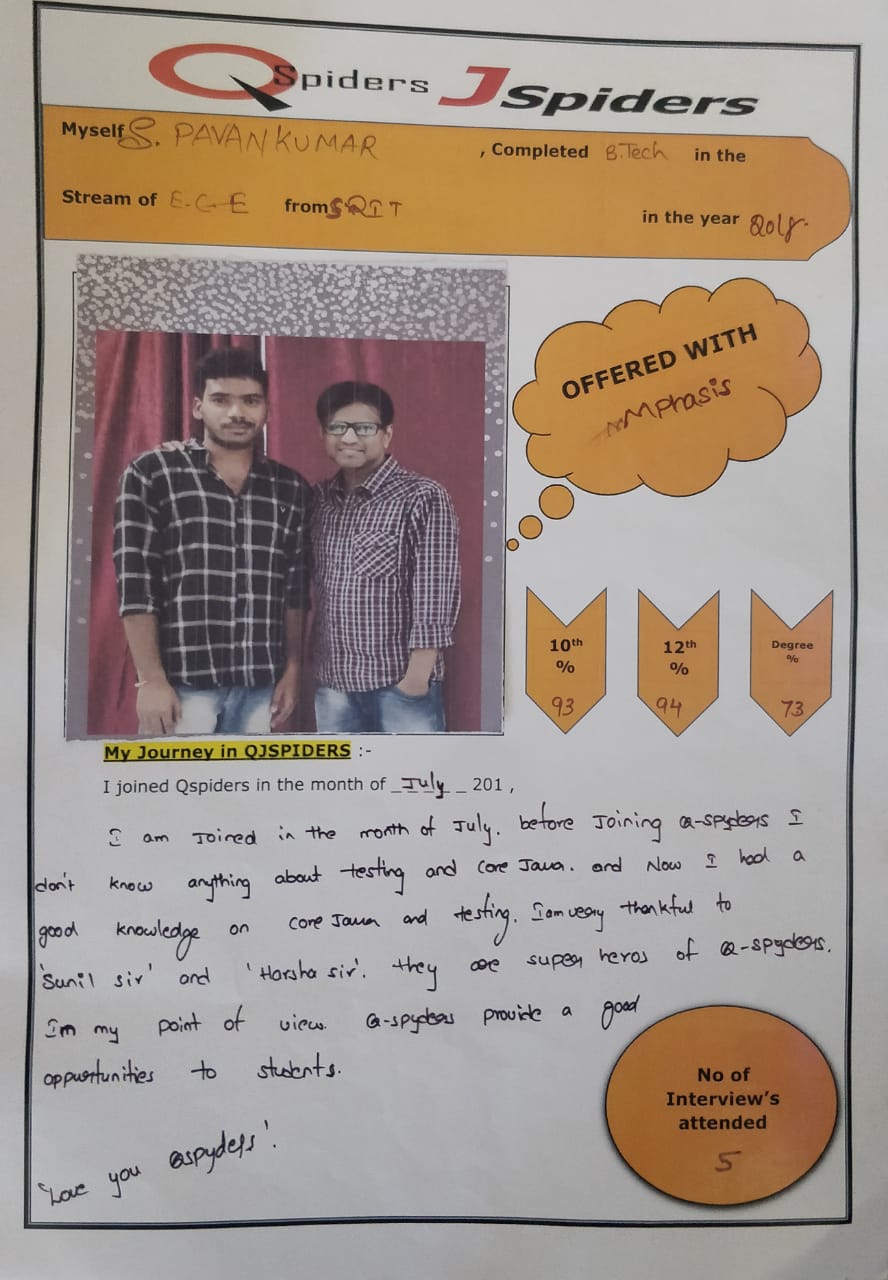 QSpiders JSpiders
Myself S. PAVANKUMAR , Completed B.Tech in the
Stream of E.C.E from SRIT in the year 2018.
OFFERED WITH
Mphasis
10th % 93
12th % 94
Degree % 73
My Journey in QJSPIDERS :-
I joined Qspiders in the month of _July_ 201 ,
I am Joined in the month of July. before Joining Q-spyders I
don't know anything about testing and core Java. and Now I had a
good knowledge on core Java and testing. I am very thankful to
'Sunil sir' and 'Harsha sir'. they are super heros of Q-spyders.
In my point of view Q-spyders provide a good
oppurtunities to students.
'Love you Qspyders'.
No of
Interview's
attended
5